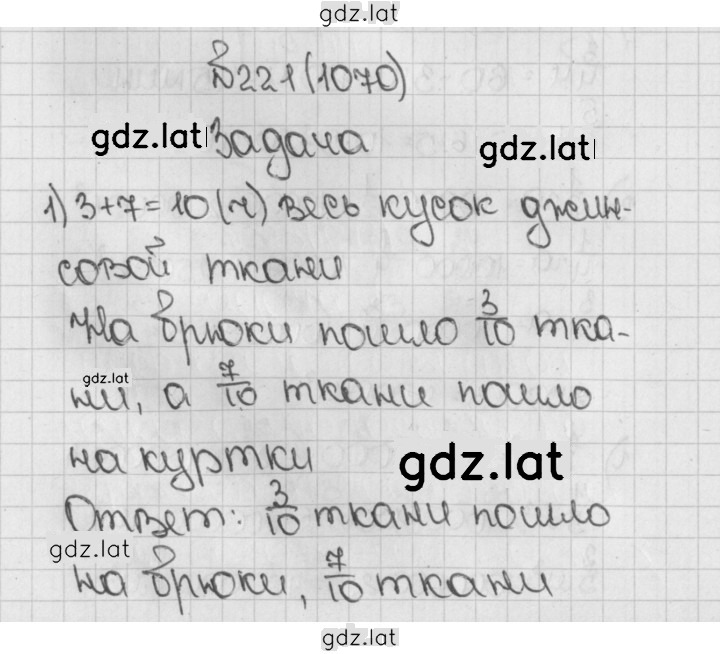 gdz.lat
№221(1070)
gdz.lat Задача gdz.lat
1) 3+7=10(ч) весь кусок джин-
совой ткани
На брюки пошло 3/10 тка-
gdz.lat
ни, а 7/10 ткани пошло
на куртки gdz.lat
Ответ: 3/10 ткани пошло
gdz.lat
на брюки, 7/10 ткани
gdz.lat